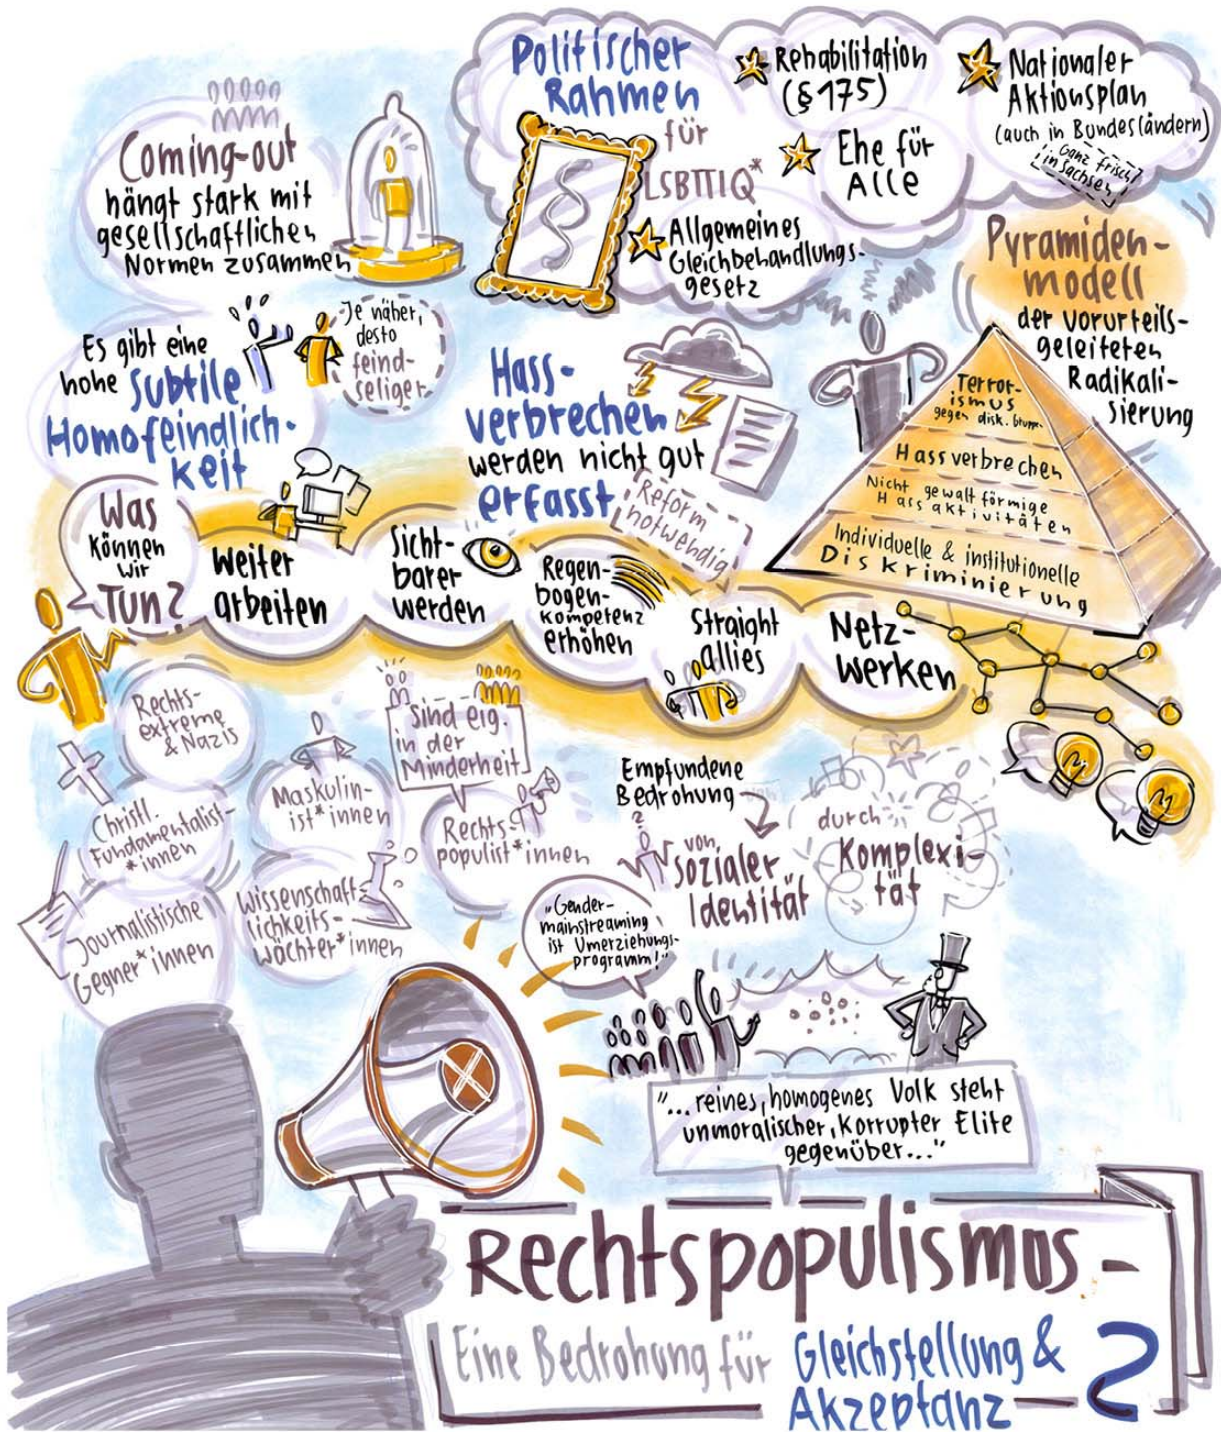 Politischer
Rahmen
für
LSBTTIQ*
Rehabilitation
(§175)
Nationaler
Aktionsplan
(auch in Bundesländern)
Ganz frisch
in Sachsen
Ehe für
Alle
Allgemeines
Gleichbehandlungs-
gesetz
Coming-out
hängt stark mit
gesellschaftlichen
Normen zusammen
Es gibt eine
hohe subtile
Homofeindlich-
keit
Je näher,
desto
feind-
seliger
Hass-
verbrechen
werden nicht gut
erfasst
Reform
notwendig
Pyramiden-
modell
der vorurteils-
geleiteten
Radikali-
sierung
Terror-
ismus
gegen disk. Gruppen
Hassverbrechen
Nicht gewaltförmige
Hassaktivitäten
Individuelle & institutionelle
Diskriminierung
Was
können
wir
Tun?
Weiter
arbeiten
Sicht-
barer
werden
Regen-
bogen-
kompetenz
erhöhen
Straight
allies
Netz-
werken
Rechts-
extreme
& Nazis
Christl.
Fundamentalist-
*innen
Journalistische
Gegner*innen
Maskulin-
ist*innen
Wissenschaft-
lichkeits-
wächter*innen
Sind eig.
in der
Minderheit
Rechts-
populist*innen
Empfundene
Bedrohung
von
sozialer
Identität
durch
Komplexi-
tät
"Gender-
mainstreaming
ist Umerziehungs-
programm!"
"... reines, homogenes Volk steht
unmoralischer, korrupter Elite
gegenüber..."
Rechtspopulismus -
Eine Bedrohung für Gleichstellung &
Akzeptanz ?